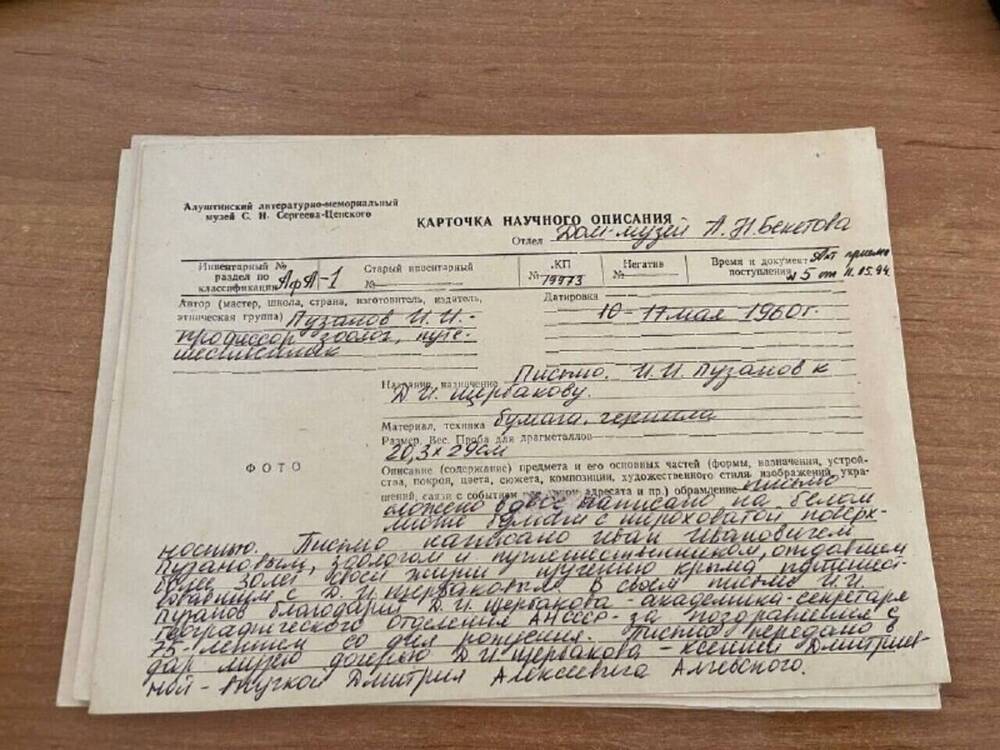 Алуштинский литературно-мемориальный
музей С. Н. Сергеева-Ценского
КАРТОЧКА НАУЧНОГО ОПИСАНИЯ
Отдел Дом-музей А. Н. Бекетова
Инвентарный №
раздел по
классификации АфА-1
Старый инвентарный
№
КП
№ 79973
Негатив
№
Время и документ
поступления Акт приема
№ 5 от 11.05.94.
Автор (мастер, школа, страна, изготовитель, издатель,
этническая группа) Пузанов И. И. -
профессор зоолог, путе-
шественник
Датировка
10-11 мая 1960г.
Название, назначение Письмо. И. И. Пузанов к
Д. И. Щербакову.
Материал, техника бумага, чернила
Размер. Вес. Проба для драгметаллов
20,3 х 29см
ФОТО
Описание (содержание) предмета и его основных частей (формы, назначения, устрой-
ства, покроя, цвета, сюжета, композиции, художественного стиля, изображений, укра-
шений, связи с событием адресата и пр.) обрамление письмо
сложено вдвое написано на белом
листе бумаги с шероховатой поверх-
ностью. Письмо написано Иван Ивановичем
Пузановым, зоологом и путешественником, отдавшем
более 30 лет своей жизни изучению Крыма
с Д. И. Щербаковым. В своем письме И. И
Пузанов благодарит Д. И. Щербакова - академика-секретаря
географического отделения АНСССР - за поздравления с
75-летием со дня рождения. Письмо передано в
дар музею дочерью Д. И. Щербакова - Ксенией Дмитриев-
ной - внучкой Дмитрия Алексеевича Алчевского.